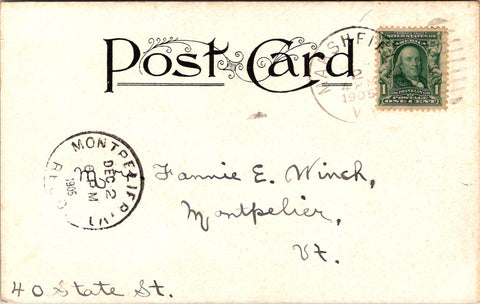 Post Card
MARSHFIE
1905
UNITED STATES OF AMERICA
FRANKLIN
1 POSTAGE 1
ONE CENT
MONTPELIER, VT.
DEC 2
6 PM
1905
REC'D
Fannie E. Winch,
Montpelier,
Vt.
40 State St.